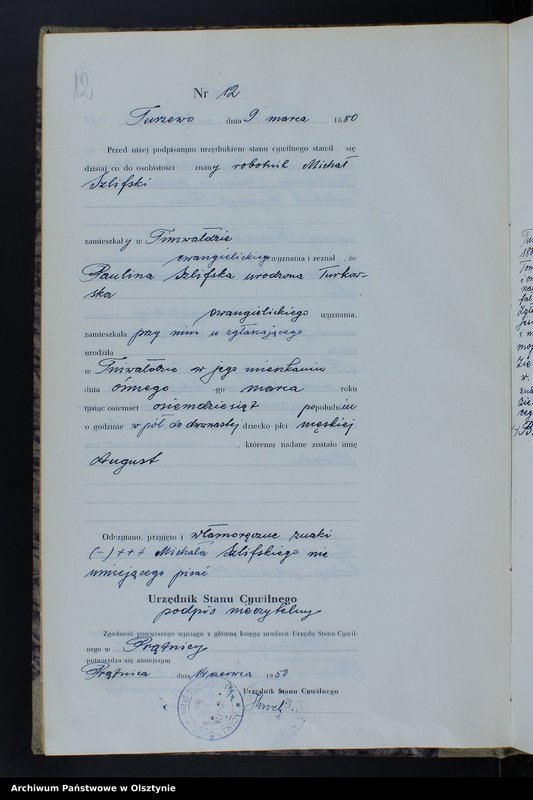 12
Nr 12
Turzewo dnia 9 marca 1880
Przed niżej podpisanym urzędnikiem stanu cywilnego stawił się
dzisiaj co do osobistości znany robotnik Michał
Szlifski
zamieszkały w Tinwałdzie
ewangielickiego wyznania i zeznał, że
Paulina Szlifska urodzona Turkow-
ska
ewangielickiego wyznania,
zamieszkała przy nim u zgłaszającego
urodziła
w Tinwałdzie w jego mieszkaniu
dnia ósmego -go marca roku
tysiąc osiemset osiemdziesiąt popołudniu
o godzinie w pół do dwunastej dziecko płci męskiej
, któremu nadane zostało imię
August
Odczytano, przyjęto i własnoręczne znaki
(-) +++ Michała Szlifskiego nie
umiejącego pisać
Urzędnik Stanu Cywilnego
podpis nieczytelny
Zgodność powyższego wyciągu z główną księgą urodzeń Urzędu Stanu Cywil-
nego w Prątnicy
potwierdza się niniejszym.
Prątnica, dnia 14 czerwca 1950
Urzędnik Stanu Cywilnego
Archiwum Państwowe w Olsztynie